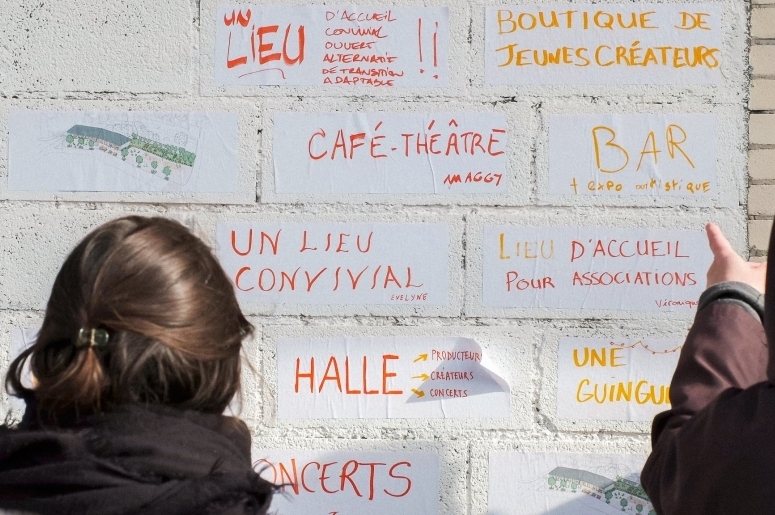 UN
LIEU
D'ACCUEIL
CONVIVIAL
OUVERT
ALTERNATIF
DE TRANSITION
ADAPTABLE
!!
BOUTIQUE DE
JEUNES CRÉATEURS
CAFÉ-THÉÂTRE
MAGGY
BAR
+ expo
UN LIEU
CONVIVIAL
EVELYNE
LIEU D'ACCUEIL
POUR ASSOCIATIONS
HALLE
→ PRODUCTEUR
→ CRÉATEURS
→ CONCERTS
UNE
GUINGU
ONCERTS